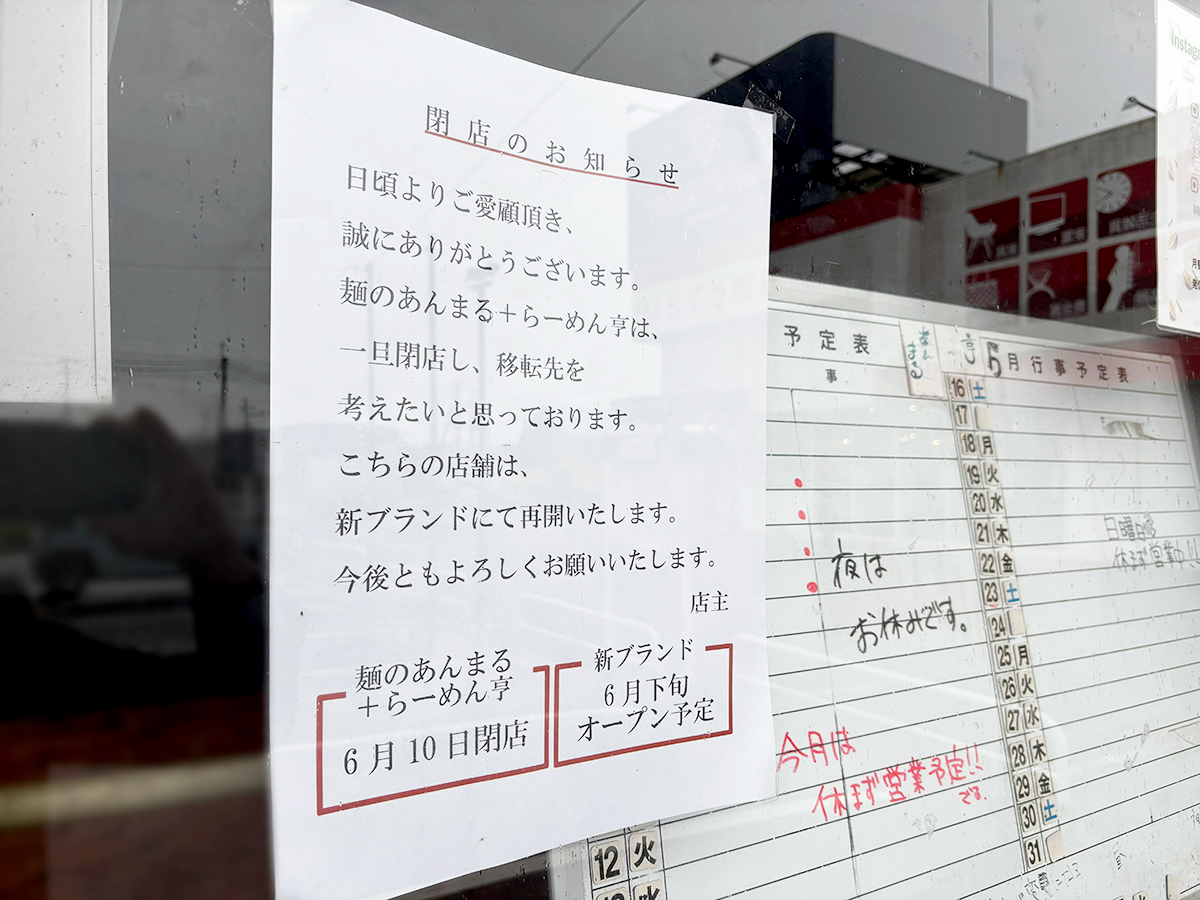 閉店のお知らせ
日頃よりご愛顧頂き、
誠にありがとうございます。
麺のあんまる＋らーめん亨は、
一旦閉店し、移転先を
考えたいと思っております。
こちらの店舗は、
新ブランドにて再開いたします。
今後ともよろしくお願いいたします。
店主
麺のあんまる
＋らーめん亨
6月10日閉店
新ブランド
6月下旬
オープン予定
予定表
事
あんまる
亨
5月行事予定表
16 土
17
18 月
19 火
20 水
21 木
22 金
23 土
24
25 月
26 火
27 水
28 木
29 金
30 土
31
夜は
お休みです。
今月は
休まず営業予定!!
です.
日曜日夜
休まず営業中!!
12 火
Instagr